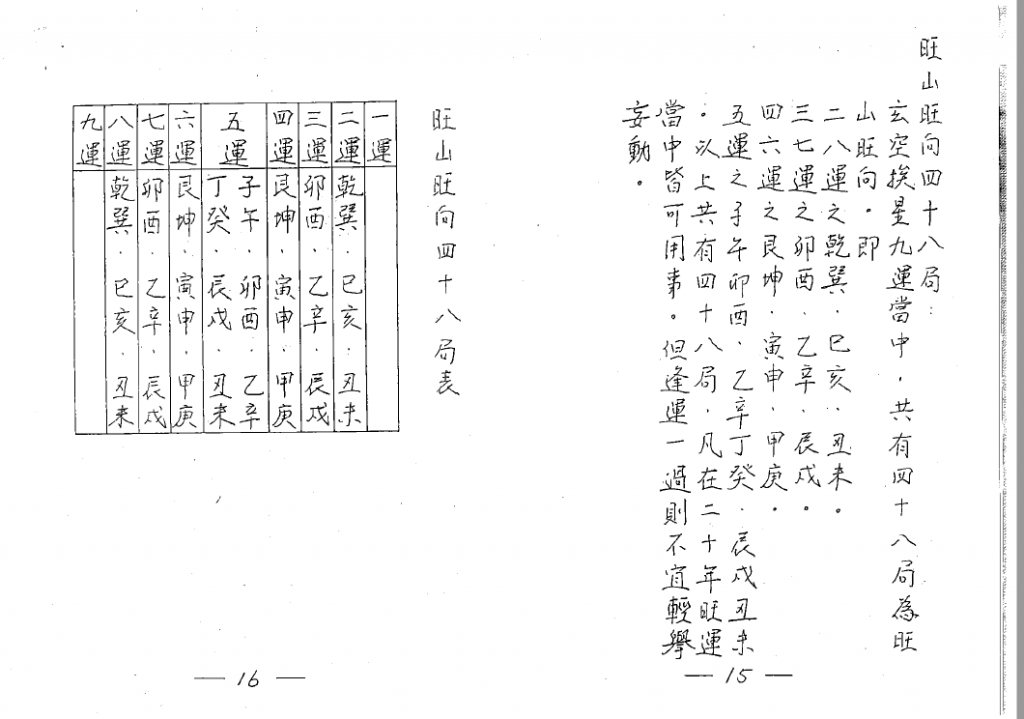 旺山旺向四十八局：
玄空挨星九運當中，共有四十八局為旺
山旺向。即
二八運之乾巽．巳亥．丑未。
三七運之卯酉．乙辛．辰戌。
四六運之艮坤．寅申．甲庚。
五運之子午卯酉．乙辛丁癸．辰戌丑未
。以上共有四十八局．凡在二十年旺運
當中皆可用事。但逢運一過則不宜輕舉
妄動。
— 15 —
旺山旺向四十八局表
一運
二運 乾巽．巳亥．丑未
三運 卯酉．乙辛．辰戌
四運 艮坤．寅申．甲庚
五運 子午．卯酉．乙辛
丁癸．辰戌．丑未
六運 艮坤．寅申．甲庚
七運 卯酉．乙辛．辰戌
八運 乾巽．巳亥．丑未
九運
— 16 —